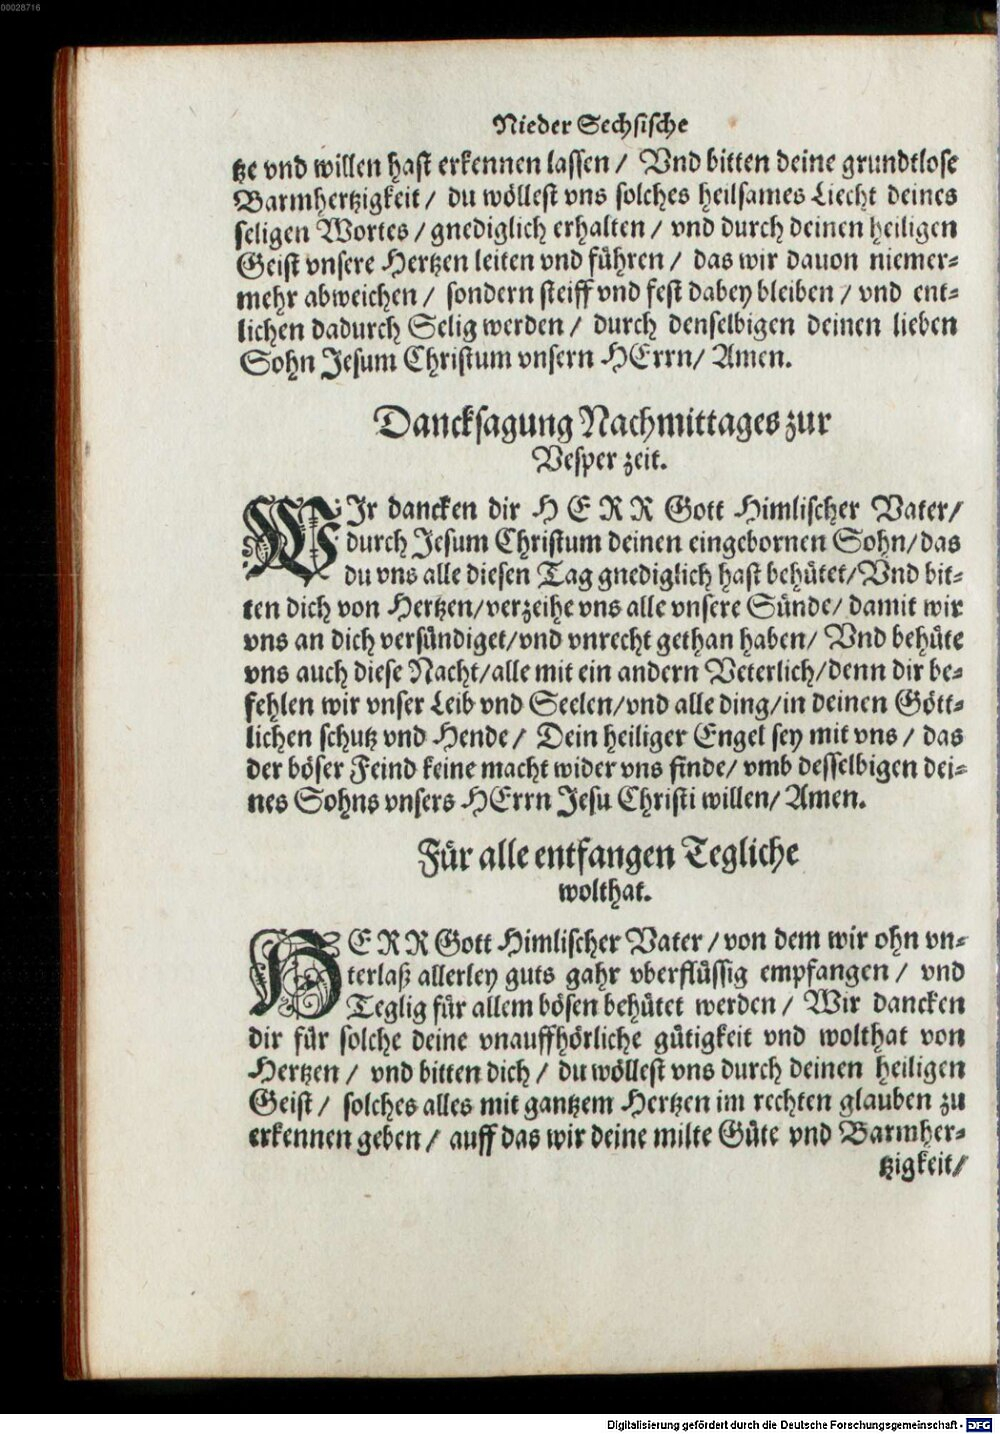 00028716
Nieder Sechsische
tze vnd willen hast erkennen lassen / Vnd bitten deine grundtlose
Barmhertzigkeit / du wöllest vns solches heilsames Liecht deines
seligen Wortes / gnediglich erhalten / vnd durch deinen heiligen
Geist vnsere Hertzen leiten vnd führen / das wir dauon niemer-
mehr abweichen / sondern steiff vnd fest dabey bleiben / vnd ent-
lichen dadurch Selig werden / durch denselbigen deinen lieben
Sohn Jesum Christum vnsern HErrn / Amen.
Dancksagung Nachmittages zur
Vesper zeit.
WJr dancken dir HERR Gott Himlischer Vater /
durch Jesum Christum deinen eingebornen Sohn / das
du vns alle diesen Tag gnediglich hast behütet / Vnd bit-
ten dich von Hertzen / verzeihe vns alle vnsere Sünde / damit wir
vns an dich versündiget / vnd vnrecht gethan haben / Vnd behüte
vns auch diese Nacht / alle mit ein andern Veterlich / denn dir be-
fehlen wir vnser Leib vnd Seelen / vnd alle ding / in deinen Gött-
lichen schutz vnd Hende / Dein heiliger Engel sey mit vns / das
der böser Feind keine macht wider vns finde / vmb desselbigen dei-
nes Sohns vnsers HErrn Jesu Christi willen / Amen.
Für alle entfangen Tegliche
wolthat.
HERR Gott Himlischer Vater / von dem wir ohn vn-
terlaß allerley guts gahr vberflüssig empfangen / vnd
Teglig für allem bösen behütet werden / Wir dancken
dir für solche deine vnauffhörliche gütigkeit vnd wolthat von
Hertzen / vnd bitten dich / du wöllest vns durch deinen heiligen
Geist / solches alles mit gantzem Hertzen im rechten glauben zu
erkennen geben / auff das wir deine milte Güte vnd Barmher-
tzigkeit /
Digitalisierung gefördert durch die Deutsche Forschungsgemeinschaft - DFG